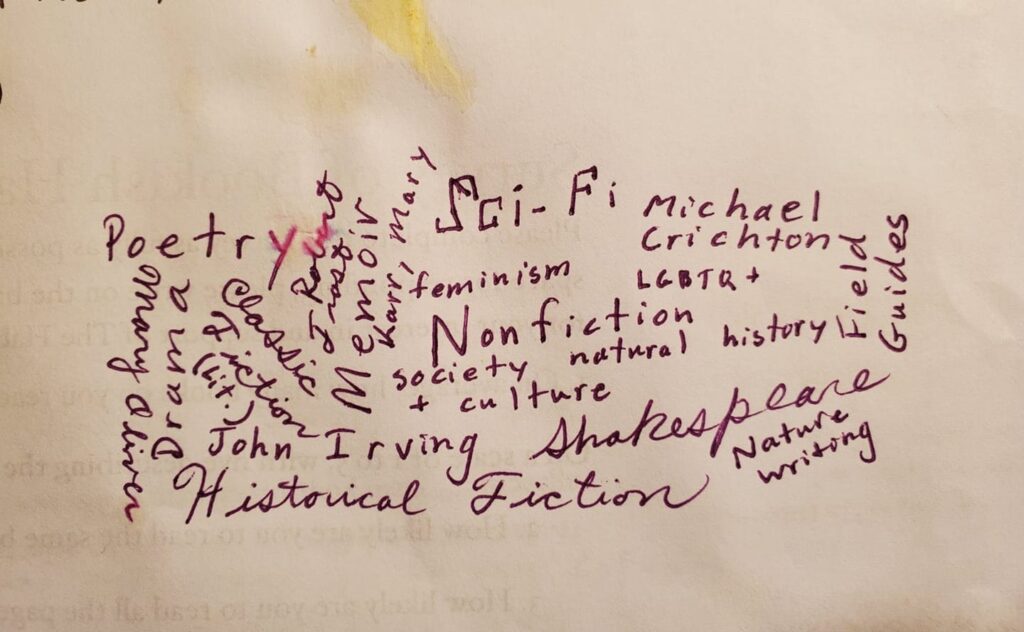 Poetry
Mary Oliver
Drama
Classic
Fiction
(Lit.)
Memoir
Karr, Mary
Sci-Fi
Michael
Crichton
feminism
LGBTQ +
Nonfiction
natural history
Field
Guides
society
+ culture
John Irving
Shakespeare
Nature
writing
Historical Fiction